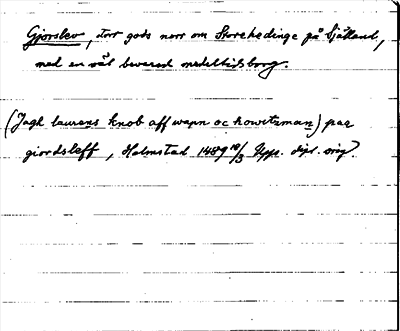 Gjorslev, stort gods norr om Storehedinge på Själland,
med en väl bevarad medeltidsborg.
(Jagh laurens knob aff wapn oc howetzman) paa
giordsleff, Halmstad 1489 10/3 Upps. dipl. orig.